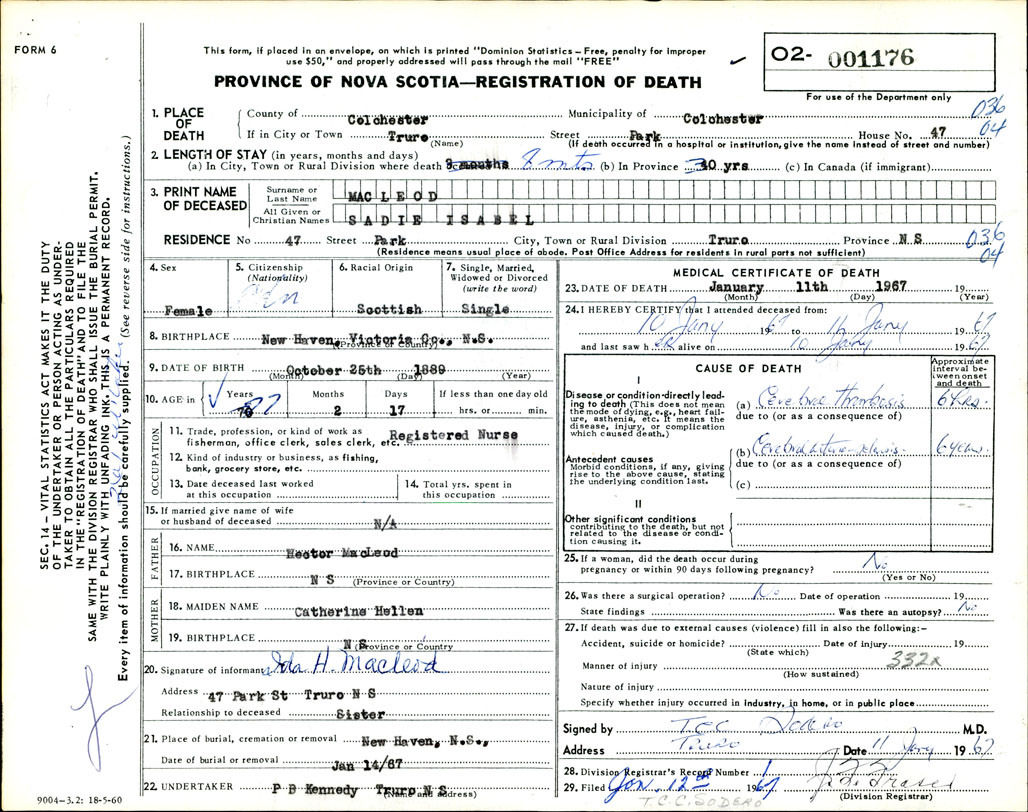 FORM 6
This form, if placed in an envelope, on which is printed "Dominion Statistics – Free, penalty for improper
use $50," and properly addressed will pass through the mail "FREE"
PROVINCE OF NOVA SCOTIA—REGISTRATION OF DEATH
O2- 001176
For use of the Department only
036
04
1. PLACE OF DEATH
County of Colchester Municipality of Colchester
If in City or Town Truro (Name) Street Park House No. 47
(If death occurred in a hospital or institution, give the name instead of street and number)
2. LENGTH OF STAY (in years, months and days)
(a) In City, Town or Rural Division where death occurred is 8 months 8 mts (b) In Province 30 yrs (c) In Canada (if immigrant)
3. PRINT NAME OF DECEASED
Surname or Last Name MACLEOD
All Given or Christian Names SADIE ISABEL
RESIDENCE No 47 Street Park City, Town or Rural Division Truro Province N S
036
04
(Residence means usual place of abode. Post Office Address for residents in rural parts not sufficient)
4. Sex Female
5. Citizenship (Nationality) Cdn
6. Racial Origin Scottish
7. Single, Married, Widowed or Divorced (write the word) Single
8. BIRTHPLACE New Haven, Victoria Co., N.S.
(Province or Country)
9. DATE OF BIRTH October 25th 1889
(Month) (Day) (Year)
10. AGE in Years 76 77 Months 2 Days 17 If less than one day old hrs. or min.
OCCUPATION
11. Trade, profession, or kind of work as fisherman, office clerk, sales clerk, etc. Registered Nurse
12. Kind of industry or business, as fishing, bank, grocery store, etc.
13. Date deceased last worked at this occupation
14. Total yrs. spent in this occupation
15. If married give name of wife or husband of deceased N/A
FATHER
16. NAME Hector MacLeod
17. BIRTHPLACE N S (Province or Country)
MOTHER
18. MAIDEN NAME Catherine Hellen
19. BIRTHPLACE N S (Province or Country)
20. Signature of informant Ida H. Macleod
Address 47 Park St Truro N S
Relationship to deceased Sister
21. Place of burial, cremation or removal New Haven, N.S.,
Date of burial or removal Jan 14/67
22. UNDERTAKER P B Kennedy Truro N S
(Name and address)
MEDICAL CERTIFICATE OF DEATH
23. DATE OF DEATH January 11th 1967 19
(Month) (Day) (Year)
24. I HEREBY CERTIFY that I attended deceased from:
10 Jany 1967 to 11 Jany 1967
and last saw her alive on 10 Jany 1967
CAUSE OF DEATH
Approximate interval between onset and death
I
Disease or condition directly leading to death (This does not mean the mode of dying, e.g., heart failure, asthenia, etc. It means the disease, injury, or complication which caused death.)
(a) Cerebral Thrombosis 6 Hrs.
due to (or as a consequence of)
Antecedent causes
Morbid conditions, if any, giving rise to the above cause, stating the underlying condition last.
(b) Cerebral arterio-sclerosis 6 years.
due to (or as a consequence of)
(c)
II
Other significant conditions contributing to the death, but not related to the disease or condition causing it.
25. If a woman, did the death occur during pregnancy or within 90 days following pregnancy? No
(Yes or No)
26. Was there a surgical operation? No Date of operation 19
State findings Was there an autopsy? No
27. If death was due to external causes (violence) fill in also the following:–
Accident, suicide or homicide? Date of injury 19
(State which)
Manner of injury 332x
(How sustained)
Nature of injury
Specify whether injury occurred in industry, in home, or in public place
Signed by T.C.C. Sodero M.D.
Address Truro Date 11 Jany 1967
28. Division Registrar's Record Number
29. Filed Jan. 12th 1967
(Division Registrar)
T.C.C. SODERO
SEC. 14 – VITAL STATISTICS ACT MAKES IT THE DUTY
OF THE UNDERTAKER OR PERSON ACTING AS UNDER-
TAKER TO OBTAIN ALL THE PARTICULARS REQUIRED
IN THE "REGISTRATION OF DEATH" AND TO FILE THE
SAME WITH THE DIVISION REGISTRAR WHO SHALL ISSUE THE BURIAL PERMIT.
WRITE PLAINLY WITH UNFADING INK, THIS IS A PERMANENT RECORD.
Every item of information should be carefully supplied. (See reverse side for instructions.)
9004–3.2: 18-5-60